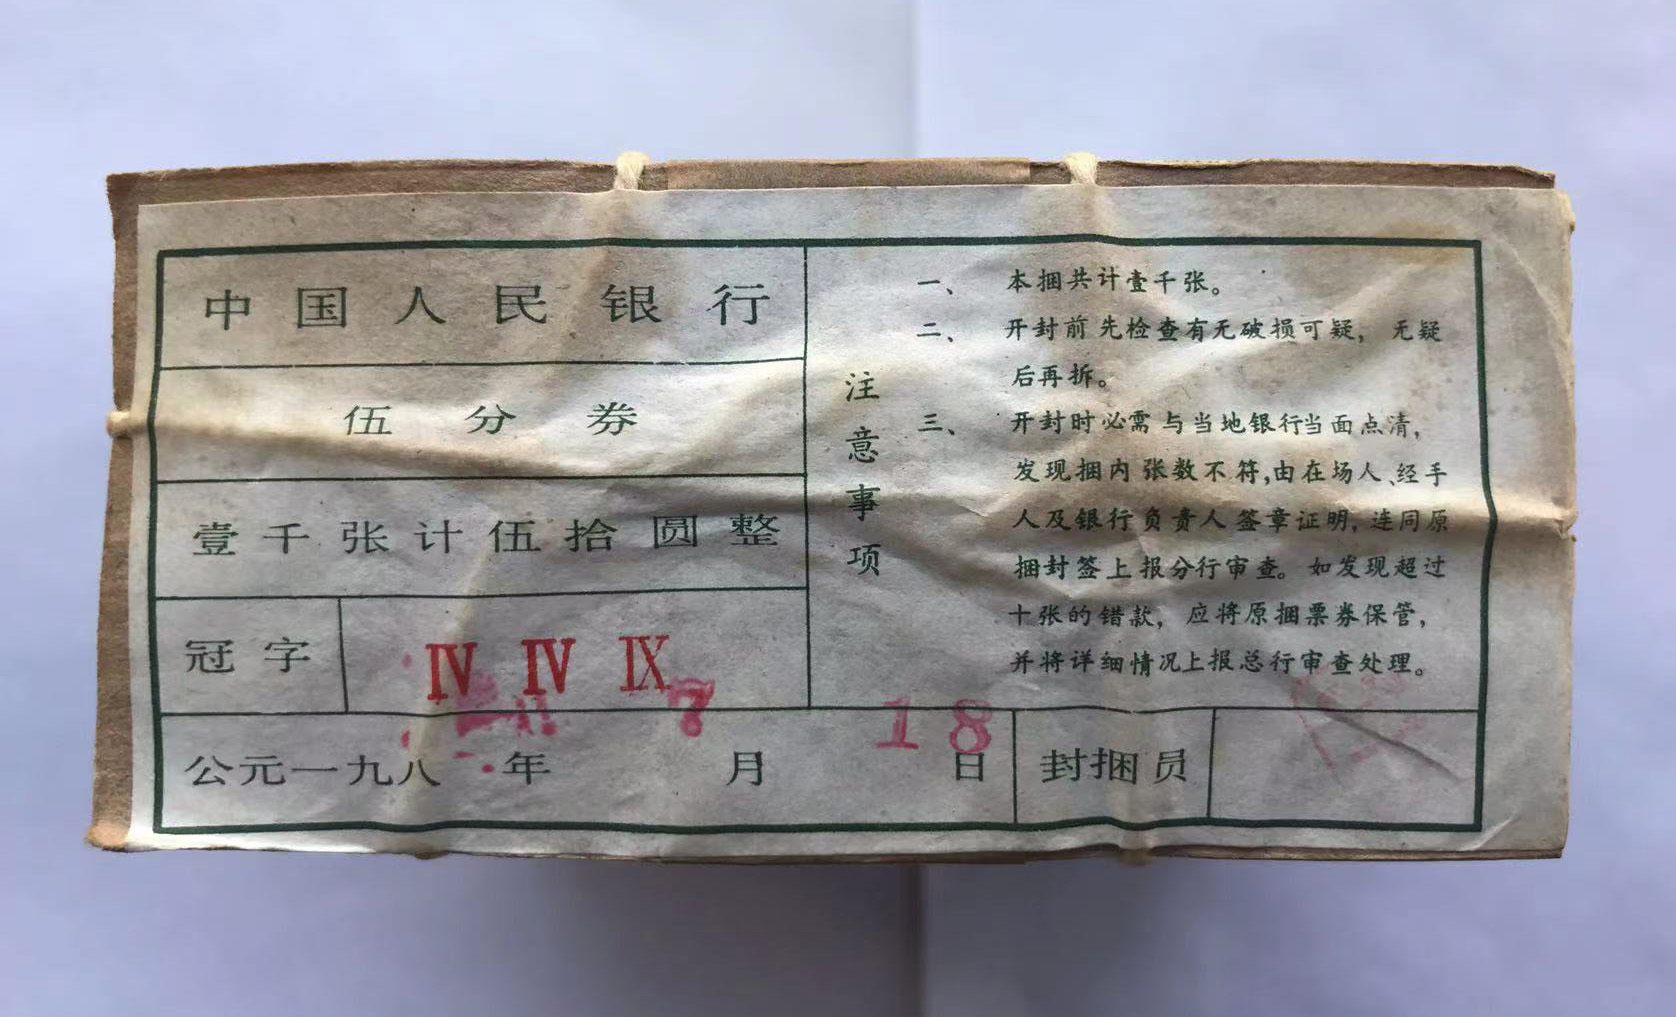 中国人民银行
伍分券
壹千张计伍拾圆整
冠字
Ⅳ Ⅳ Ⅸ
注意事项
一、 本捆共计壹千张。
二、 开封前先检查有无破损可疑, 无疑
后再拆。
三、 开封时必需与当地银行当面点清,
发现捆内张数不符,由在场人、经手
人及银行负责人签章证明, 连同原
捆封签上报分行审查。如发现超过
十张的错款, 应将原捆票券保管,
并将详细情况上报总行审查处理。
7 18
公元一九八 年 月 日
封捆员